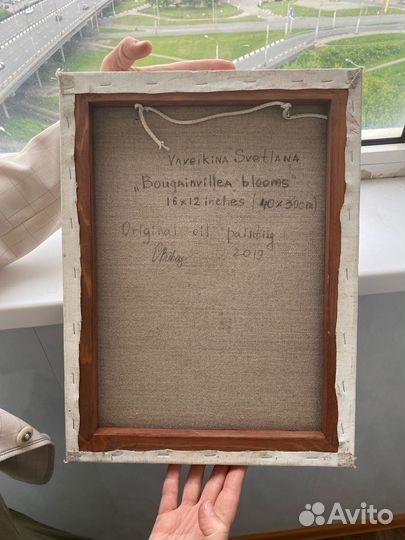 Vaveikina Svetlana
„Bougainvillea blooms"
16x12 inches (40x30cm)
Original oil painting
2013
Avito